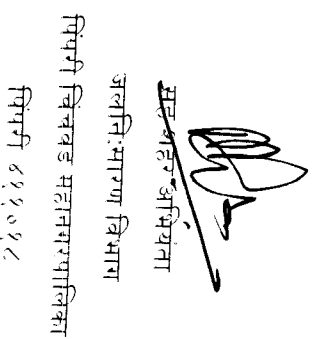 सह शहर अभियंता
जलनिःसारण विभाग
पिंपरी चिंचवड महानगरपालिका
पिंपरी ४११०१८